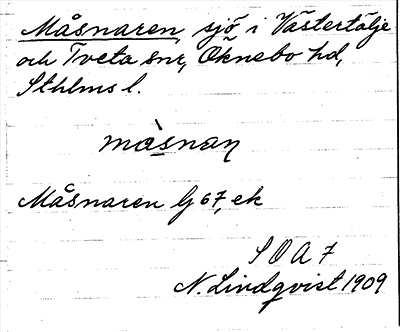 Måsnaren, sjö, i Västertälje
och Tveta snr, Öknebo hd,
Sthlms l.
màsnaɳ
Måsnaren G 67, ek
S O A 7
N. Lindqvist 1909